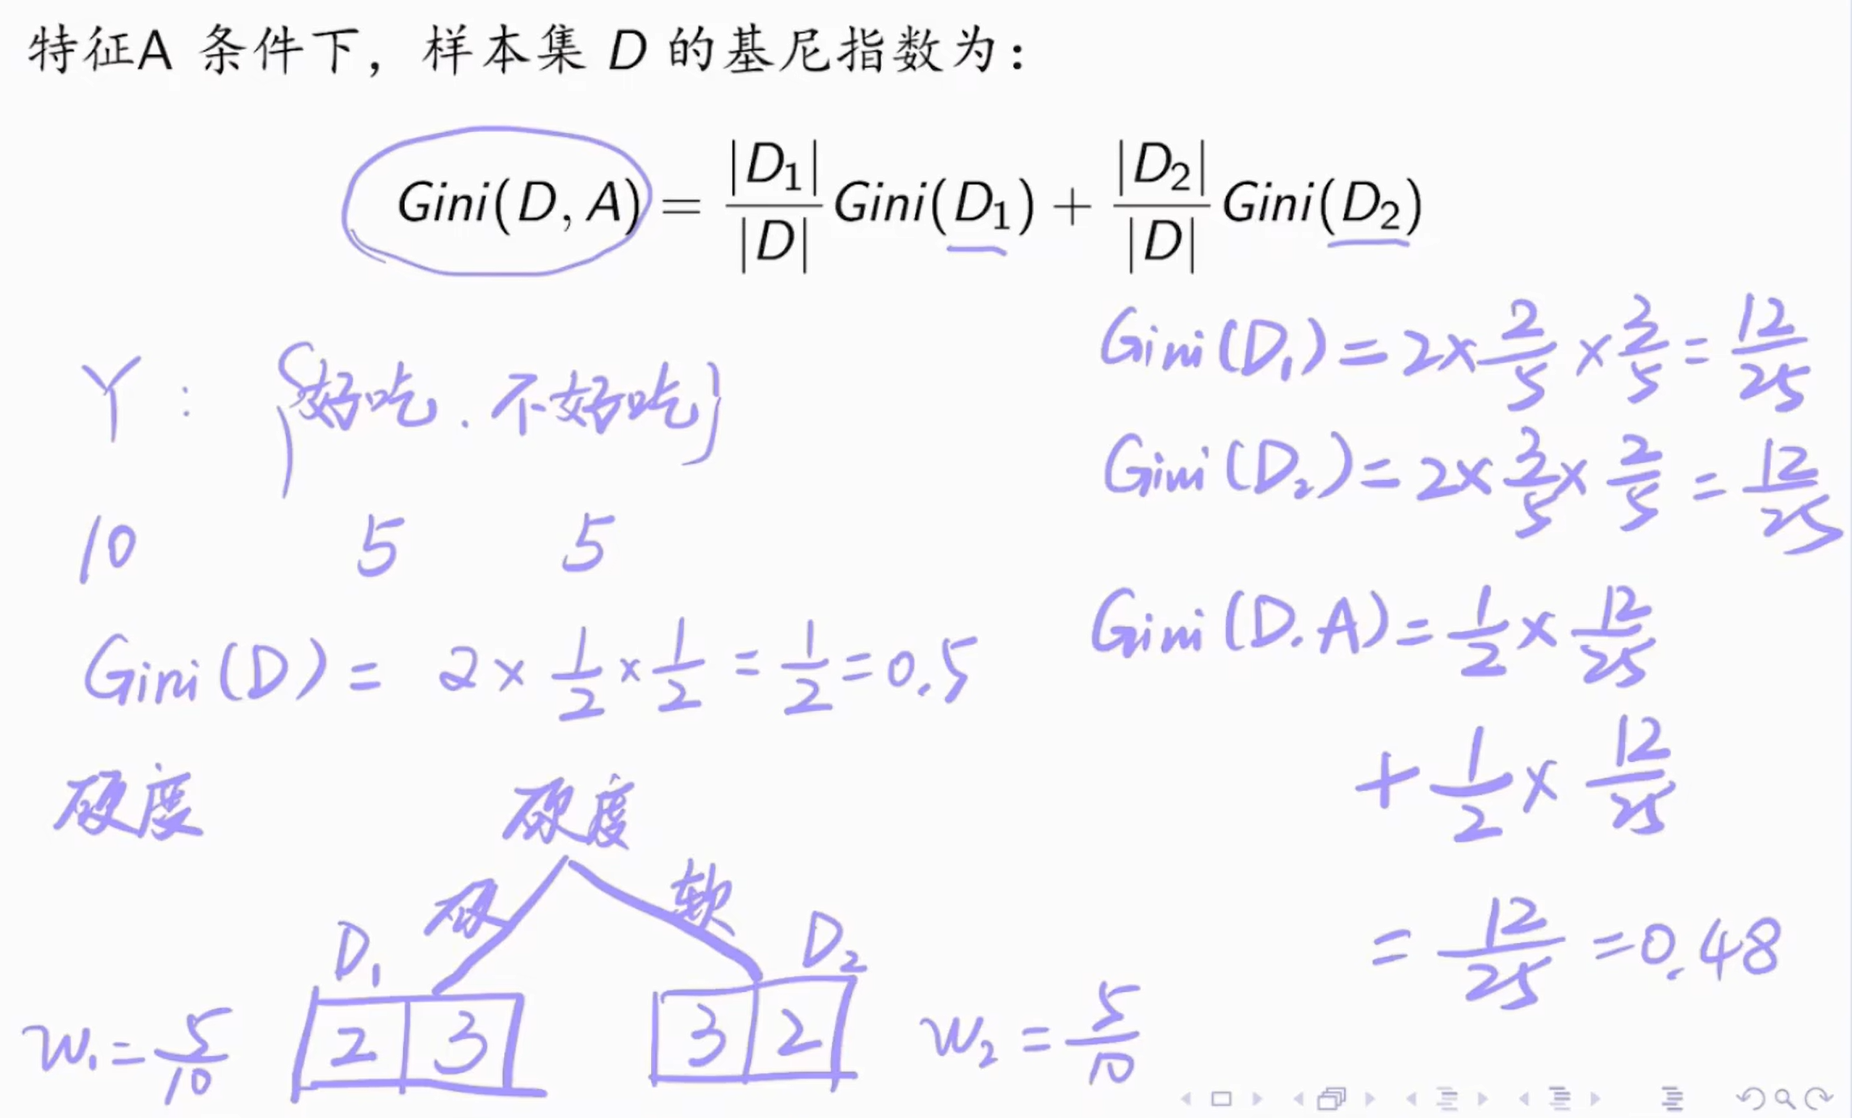 特征A 条件下，样本集 D 的基尼指数为：
Gini(D, A) = |D₁|/|D| Gini(D₁) + |D₂|/|D| Gini(D₂)
Y : {好吃. 不好吃}
10 5 5
Gini(D) = 2 × 1/2 × 1/2 = 1/2 = 0.5
硬度
硬度
硬 软
D₁ D₂
w₁ = 5/10 2 3 3 2 w₂ = 5/10
Gini(D₁) = 2 × 2/5 × 3/5 = 12/25
Gini(D₂) = 2 × 3/5 × 2/5 = 12/25
Gini(D.A) = 1/2 × 12/25
+ 1/2 × 12/25
= 12/25 = 0.48